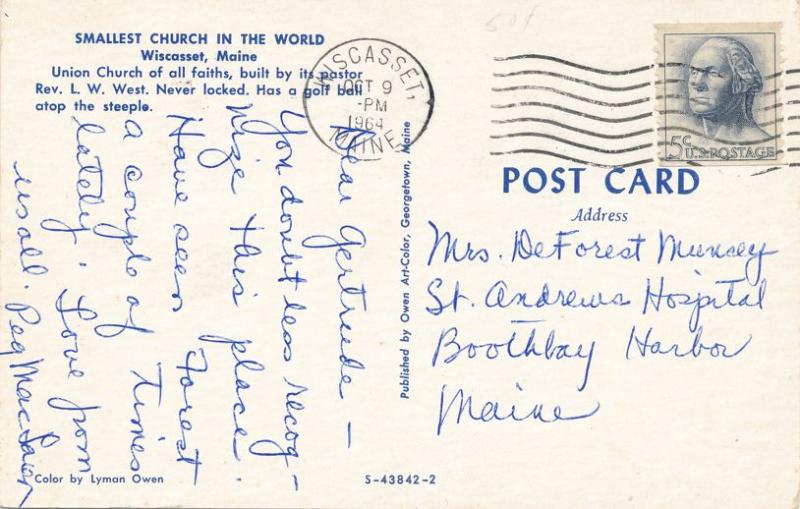 SMALLEST CHURCH IN THE WORLD
Wiscasset, Maine
Union Church of all faiths, built by its pastor
Rev. L. W. West. Never locked. Has a golf ball
atop the steeple.
Dear Gertrude –
You doubtless recog-
nize this place.
Have seen Forest
a couple of Times
lately. Love from
us all. Peg
Color by Lyman Owen
S-43842-2
Published by Owen Art-Color, Georgetown, Maine
WISCASSET,
OCT 9
-PM
1964
MAINE
50¢
5¢ U.S. POSTAGE
POST CARD
Address
Mrs. DeForest Muncey
St. Andrews Hospital
Boothbay Harbor
Maine